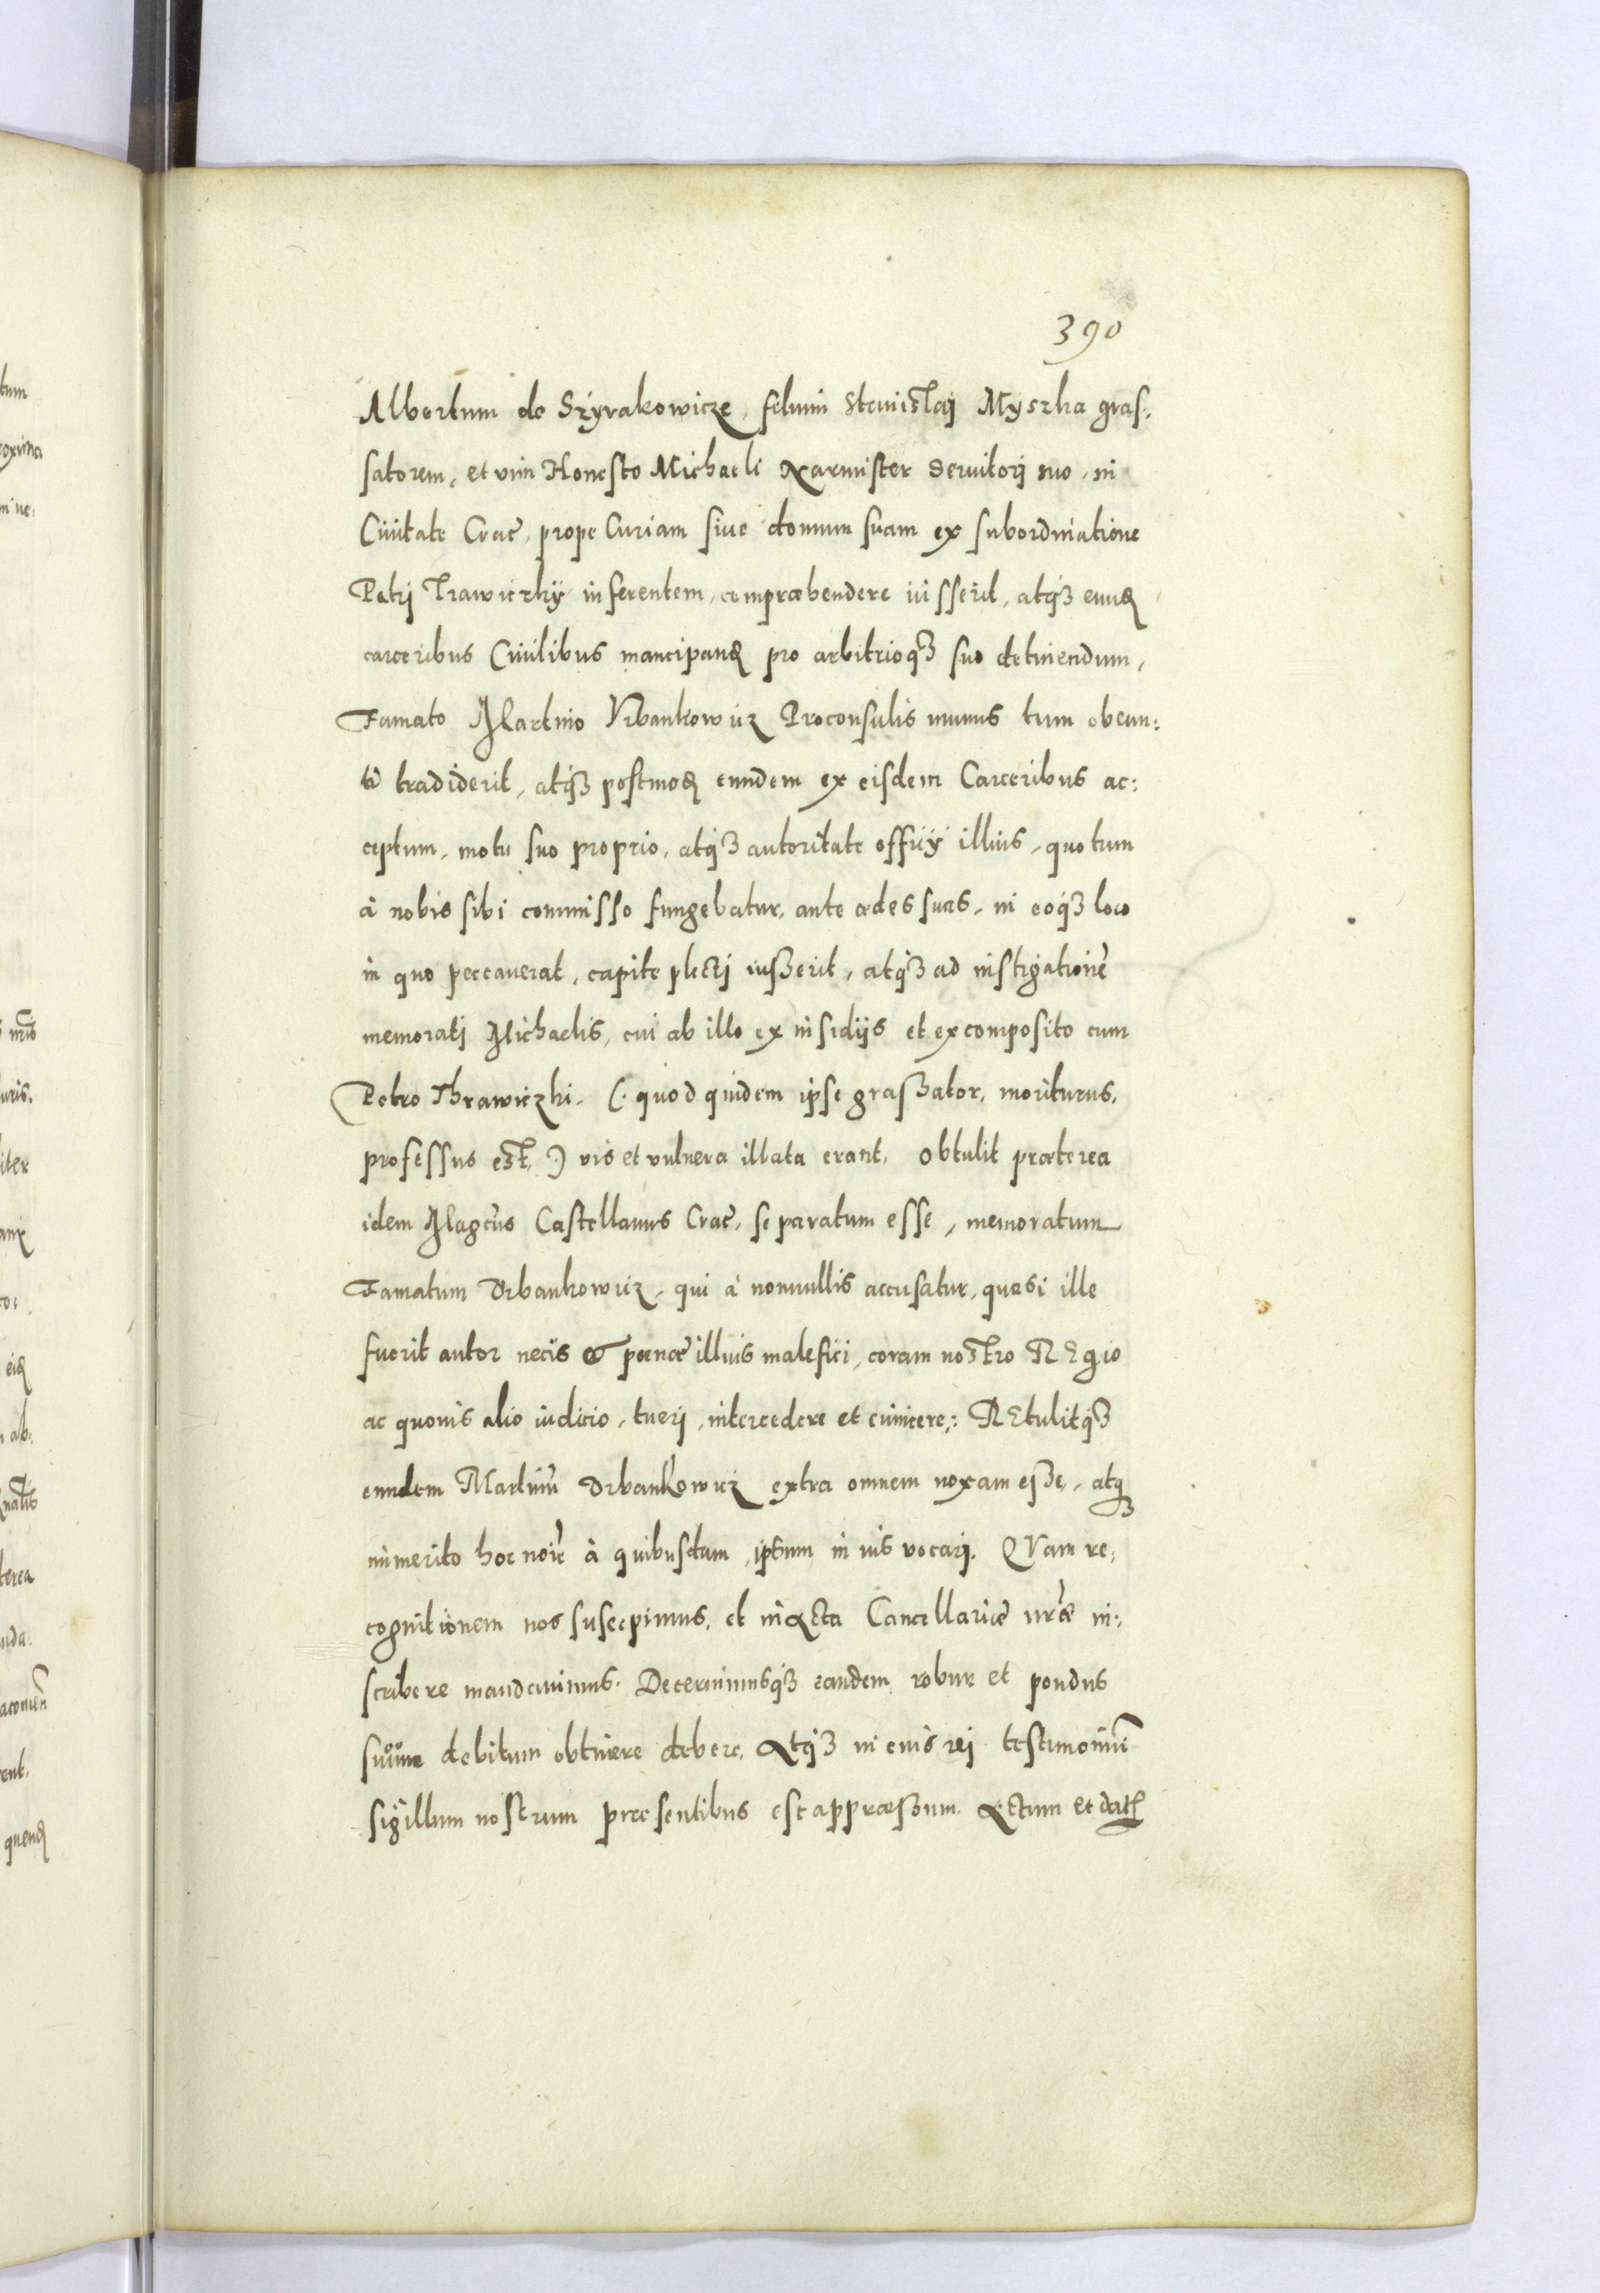 390
Albertum de Sżyrakowicze, filium Stanislaj Myszka gras:
satorem, et vim Honesto Michaeli Karmister Seruitorj suo, in
Ciuitate Crac, prope Curiam siue domum suam ex subordinatione
Petrj Trawiczky inferentem, compræhendere iusserit, atq3 eund
carceribus Ciuilibus mancipand pro arbitrioq3 suo detinendum,
Famato Martino Vrbankowicz Proconsulis munus tum obeun:
ti tradiderit, atq3 postmod eundem ex eisdem Carceribus ac:
ceptum, motu suo proprio, atq3 autoritate officÿ illius, quo tum
à nobis sibi commisso fungebatur, ante ædes suas, in eoq3 loco
in quo peccauerat, capite plectj iusserit, atq3 ad instigationē
memoratj Michaelis, cui ab illo ex insidijs et ex composito cum
Petro Thrawiczki, (: quod quidem ipse grassator, moriturus,
professus est, :) vis et vulnera illata erant, obtulit præterea
idem Magcus Castellanus Crac, se paratum esse, memoratum
Famatum Vrbankowicz, qui à nonnullis accusatur, quasi ille
fuerit autor necis & pœnæ illius malefici, coram nostro REgio
ac quouis alio iudicio, tuerj, intercedere et euincere: REtulitq3
eundem Martinū Vrbankowicz extra omnem noxam esse, atq3
immerito hoc noīe à quibusdam, ipsum in ius vocarj. QVam re:
cognitionem nos suscepimus, et in Acta Cancellariæ nræ in:
scribere mandauimus. Decernimusq3 eandem robur et pondus
suum debitum obtinere debere, Atq3 in euis rej testimoniū
sigillum nostrum præsentibus est appræssum. Actum et dat